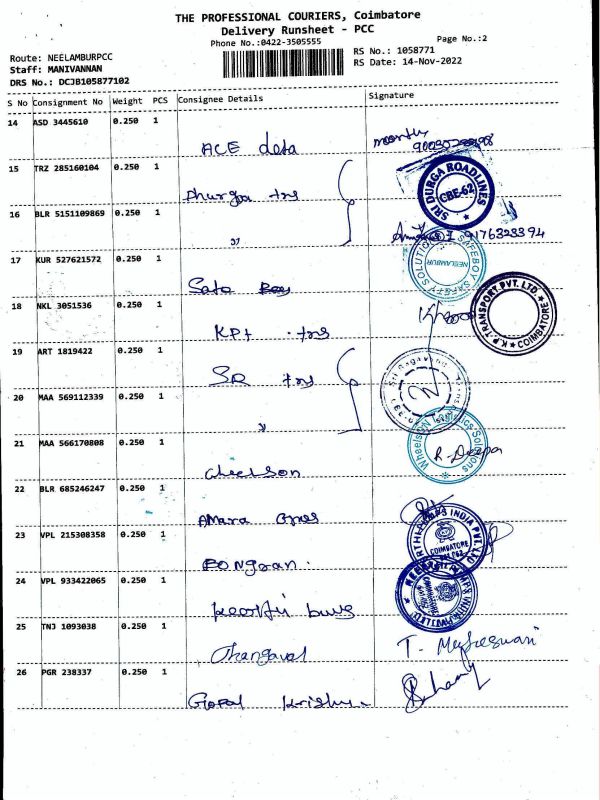 THE PROFESSIONAL COURIERS, Coimbatore
Delivery Runsheet - PCC
Phone No.:0422-3505555
Page No.:2
Route: NEELAMBURPCC
Staff: MANIVANNAN
DRS No.: DCJB105877102
RS No.: 1058771
RS Date: 14-Nov-2022
S No Consignment No Weight PCS Consignee Details Signature
14 ASD 3445610 0.250 1
ACE data
15 TRZ 285160104 0.250 1
Dhurga tns
SRI DURGA ROADLINES
CBE-62
16 BLR 5151109869 0.250 1
"
9176323394
17 KUR 527621572 0.250 1
SAFEBOT SAFETY SOLUTIONS
NEELAMBUR
18 NKL 3051536 0.250 1
KPt tns
K.P. TRANSPORT PVT. LTD
COIMBATORE
19 ART 1819422 0.250 1
SR tns
20 MAA 569112339 0.250 1
"
21 MAA 566170808 0.250 1
R. Deepa
22 BLR 685246247 0.250 1
AMara
23 VPL 215308358 0.250 1
INDIA PVT. LTD
COIMBATORE
24 VPL 933422065 0.250 1
25 TNJ 1093038 0.250 1
Thangavel
T. Mageswari
26 PGR 238337 0.250 1
Gopal